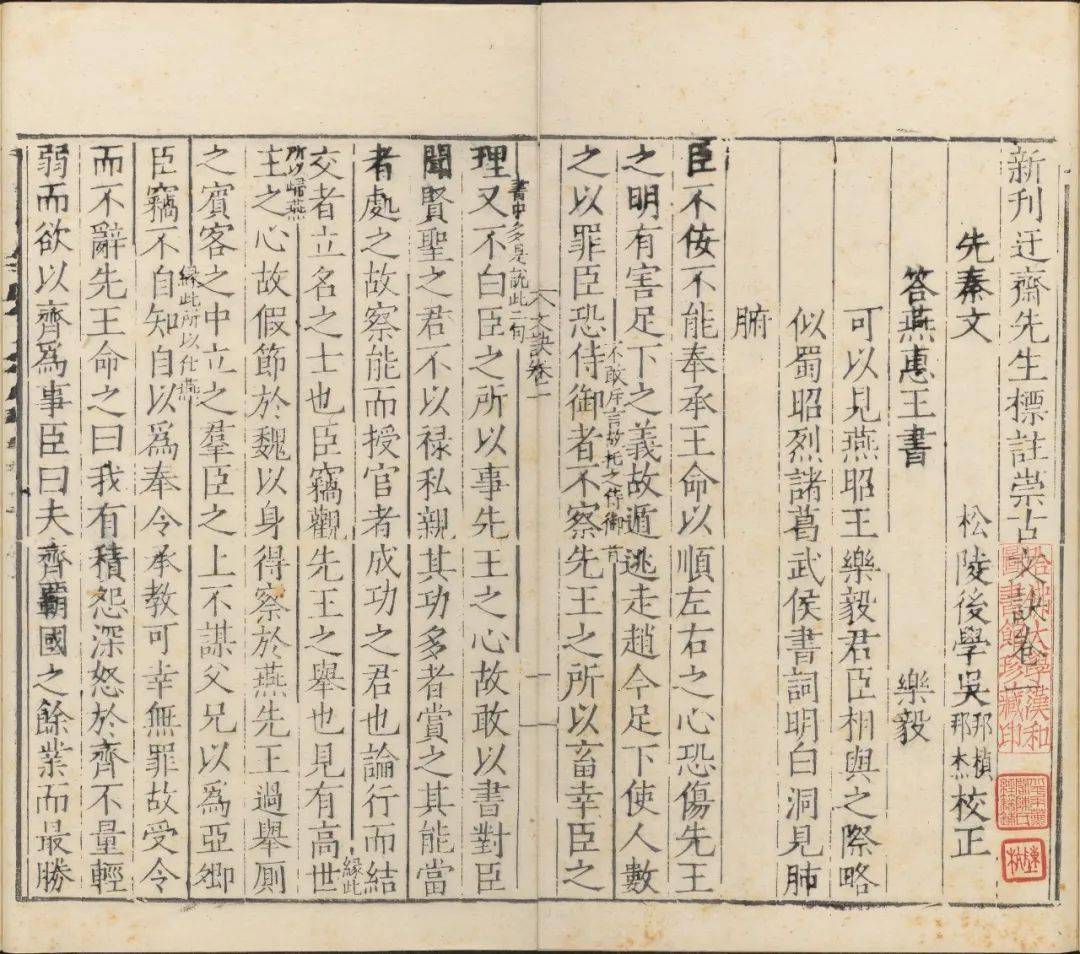 新刊迂齋先生標註崇古文訣卷一
先秦文
松陵後學吳邦楨邦杰校正
答燕惠王書
樂毅
可以見燕昭王樂毅君臣相與之際略
似蜀昭烈諸葛武侯書詞明白洞見肺
腑
臣不佞不能奉承王命以順左右之心恐傷先王
之明有害足下之義故遁逃走趙今足下使人數
不敢斥言故托之侍御者
之以罪臣恐侍御者不察先王之所以畜幸臣之
古文訣卷一
一
書中多是說此二句
理又不白臣之所以事先王之心故敢以書對臣
聞賢聖之君不以祿私親其功多者賞之其能當
者處之故察能而授官者成功之君也論行而結
緣此
交者立名之士也臣竊觀先王之舉也見有高世
所以歸燕
主之心故假節於魏以身得察於燕先王過舉厠
之賓客之中立之羣臣之上不謀父兄以爲亞卿
緣此所以仕燕
臣竊不自知自以爲奉令承教可幸無罪故受令
而不辭先王命之曰我有積怨深怒於齊不量輕
弱而欲以齊爲事臣曰夫齊霸國之餘業而最勝
哈佛大學漢和
圖書館珍藏印